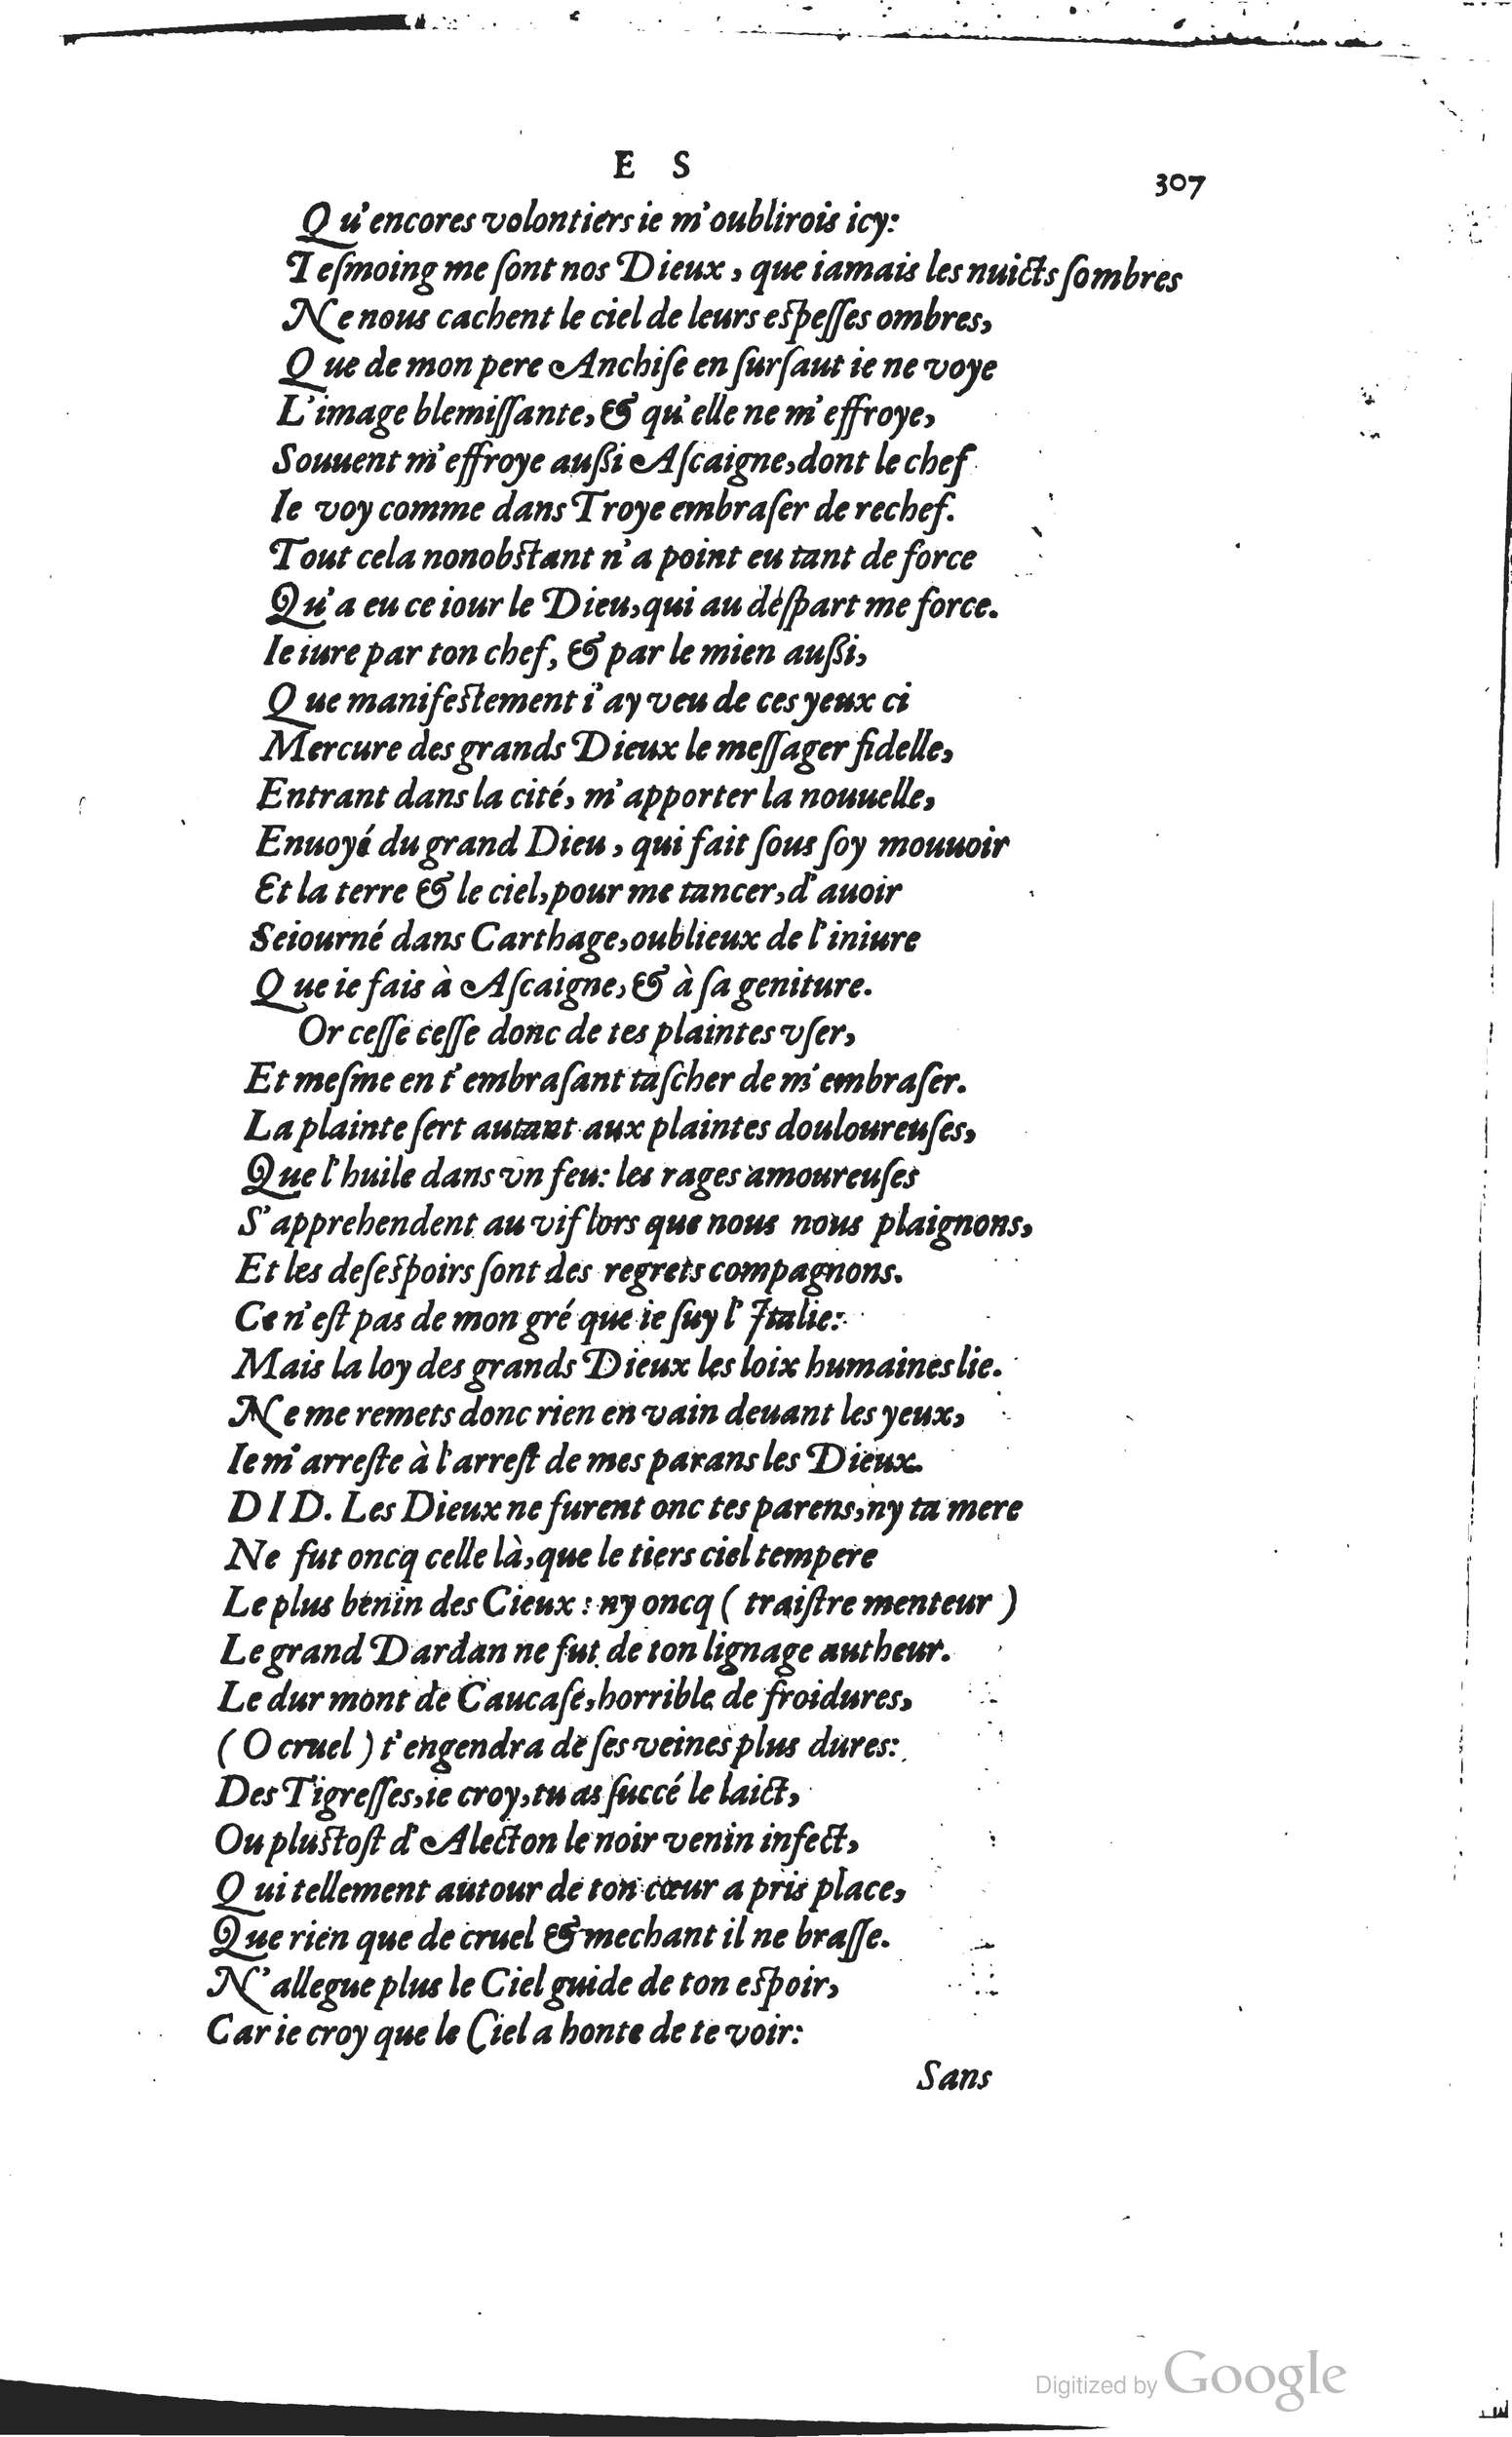 E S
307
Qu'encores volontiers ie m'oublirois icy:
Teſmoing me ſont nos Dieux, que iamais les nuicts ſombres
Ne nous cachent le ciel de leurs eſpeſſes ombres,
Que de mon pere Anchiſe en ſurſaut ie ne voye
L'image blemiſſante, & qu'elle ne m'effroye,
Souuent m'effroye außi Aſcaigne, dont le chef
Ie voy comme dans Troye embraſer de rechef.
Tout cela nonobſtant n'a point eu tant de force
Qu'a eu ce iour le Dieu, qui au deſpart me force.
Ie iure par ton chef, & par le mien außi,
Que manifeſtement i'ay veu de ces yeux ci
Mercure des grands Dieux le meſſager fidelle,
Entrant dans la cité, m'apporter la nouuelle,
Enuoyé du grand Dieu, qui fait ſous ſoy mouuoir
Et la terre & le ciel, pour me tancer, d'auoir
Seiourné dans Carthage, oublieux de l'iniure
Que ie fais à Aſcaigne, & à ſa geniture.
Or ceſſe ceſſe donc de tes plaintes vſer,
Et meſme en t'embraſant taſcher de m'embraſer.
La plainte ſert autant aux plaintes douloureuſes,
Que l'huile dans vn feu: les rages amoureuſes
S'apprehendent au vif lors que nous nous plaignons,
Et les deſeſpoirs ſont des regrets compagnons.
Ce n'eſt pas de mon gré que ie ſuy l'Italie:
Mais la loy des grands Dieux les loix humaines lie.
Ne me remets donc rien en vain deuant les yeux,
Ie m'arreſte à l'arreſt de mes parans les Dieux.
DID. Les Dieux ne furent onc tes parens, ny ta mere
Ne fut oncq celle là, que le tiers ciel tempere
Le plus benin des Cieux: ny oncq (traiſtre menteur)
Le grand Dardan ne fut de ton lignage autheur.
Le dur mont de Caucaſe, horrible de froidures,
(O cruel) t'engendra de ſes veines plus dures:
Des Tigreſſes, ie croy, tu as ſuccé le laict,
Ou pluſtoſt d'Alecton le noir venin infect,
Qui tellement autour de ton cœur a pris place,
Que rien que de cruel & mechant il ne braſſe.
N'allegue plus le Ciel guide de ton eſpoir,
Car ie croy que le Ciel a honte de te voir:
Sans
Digitized by Google